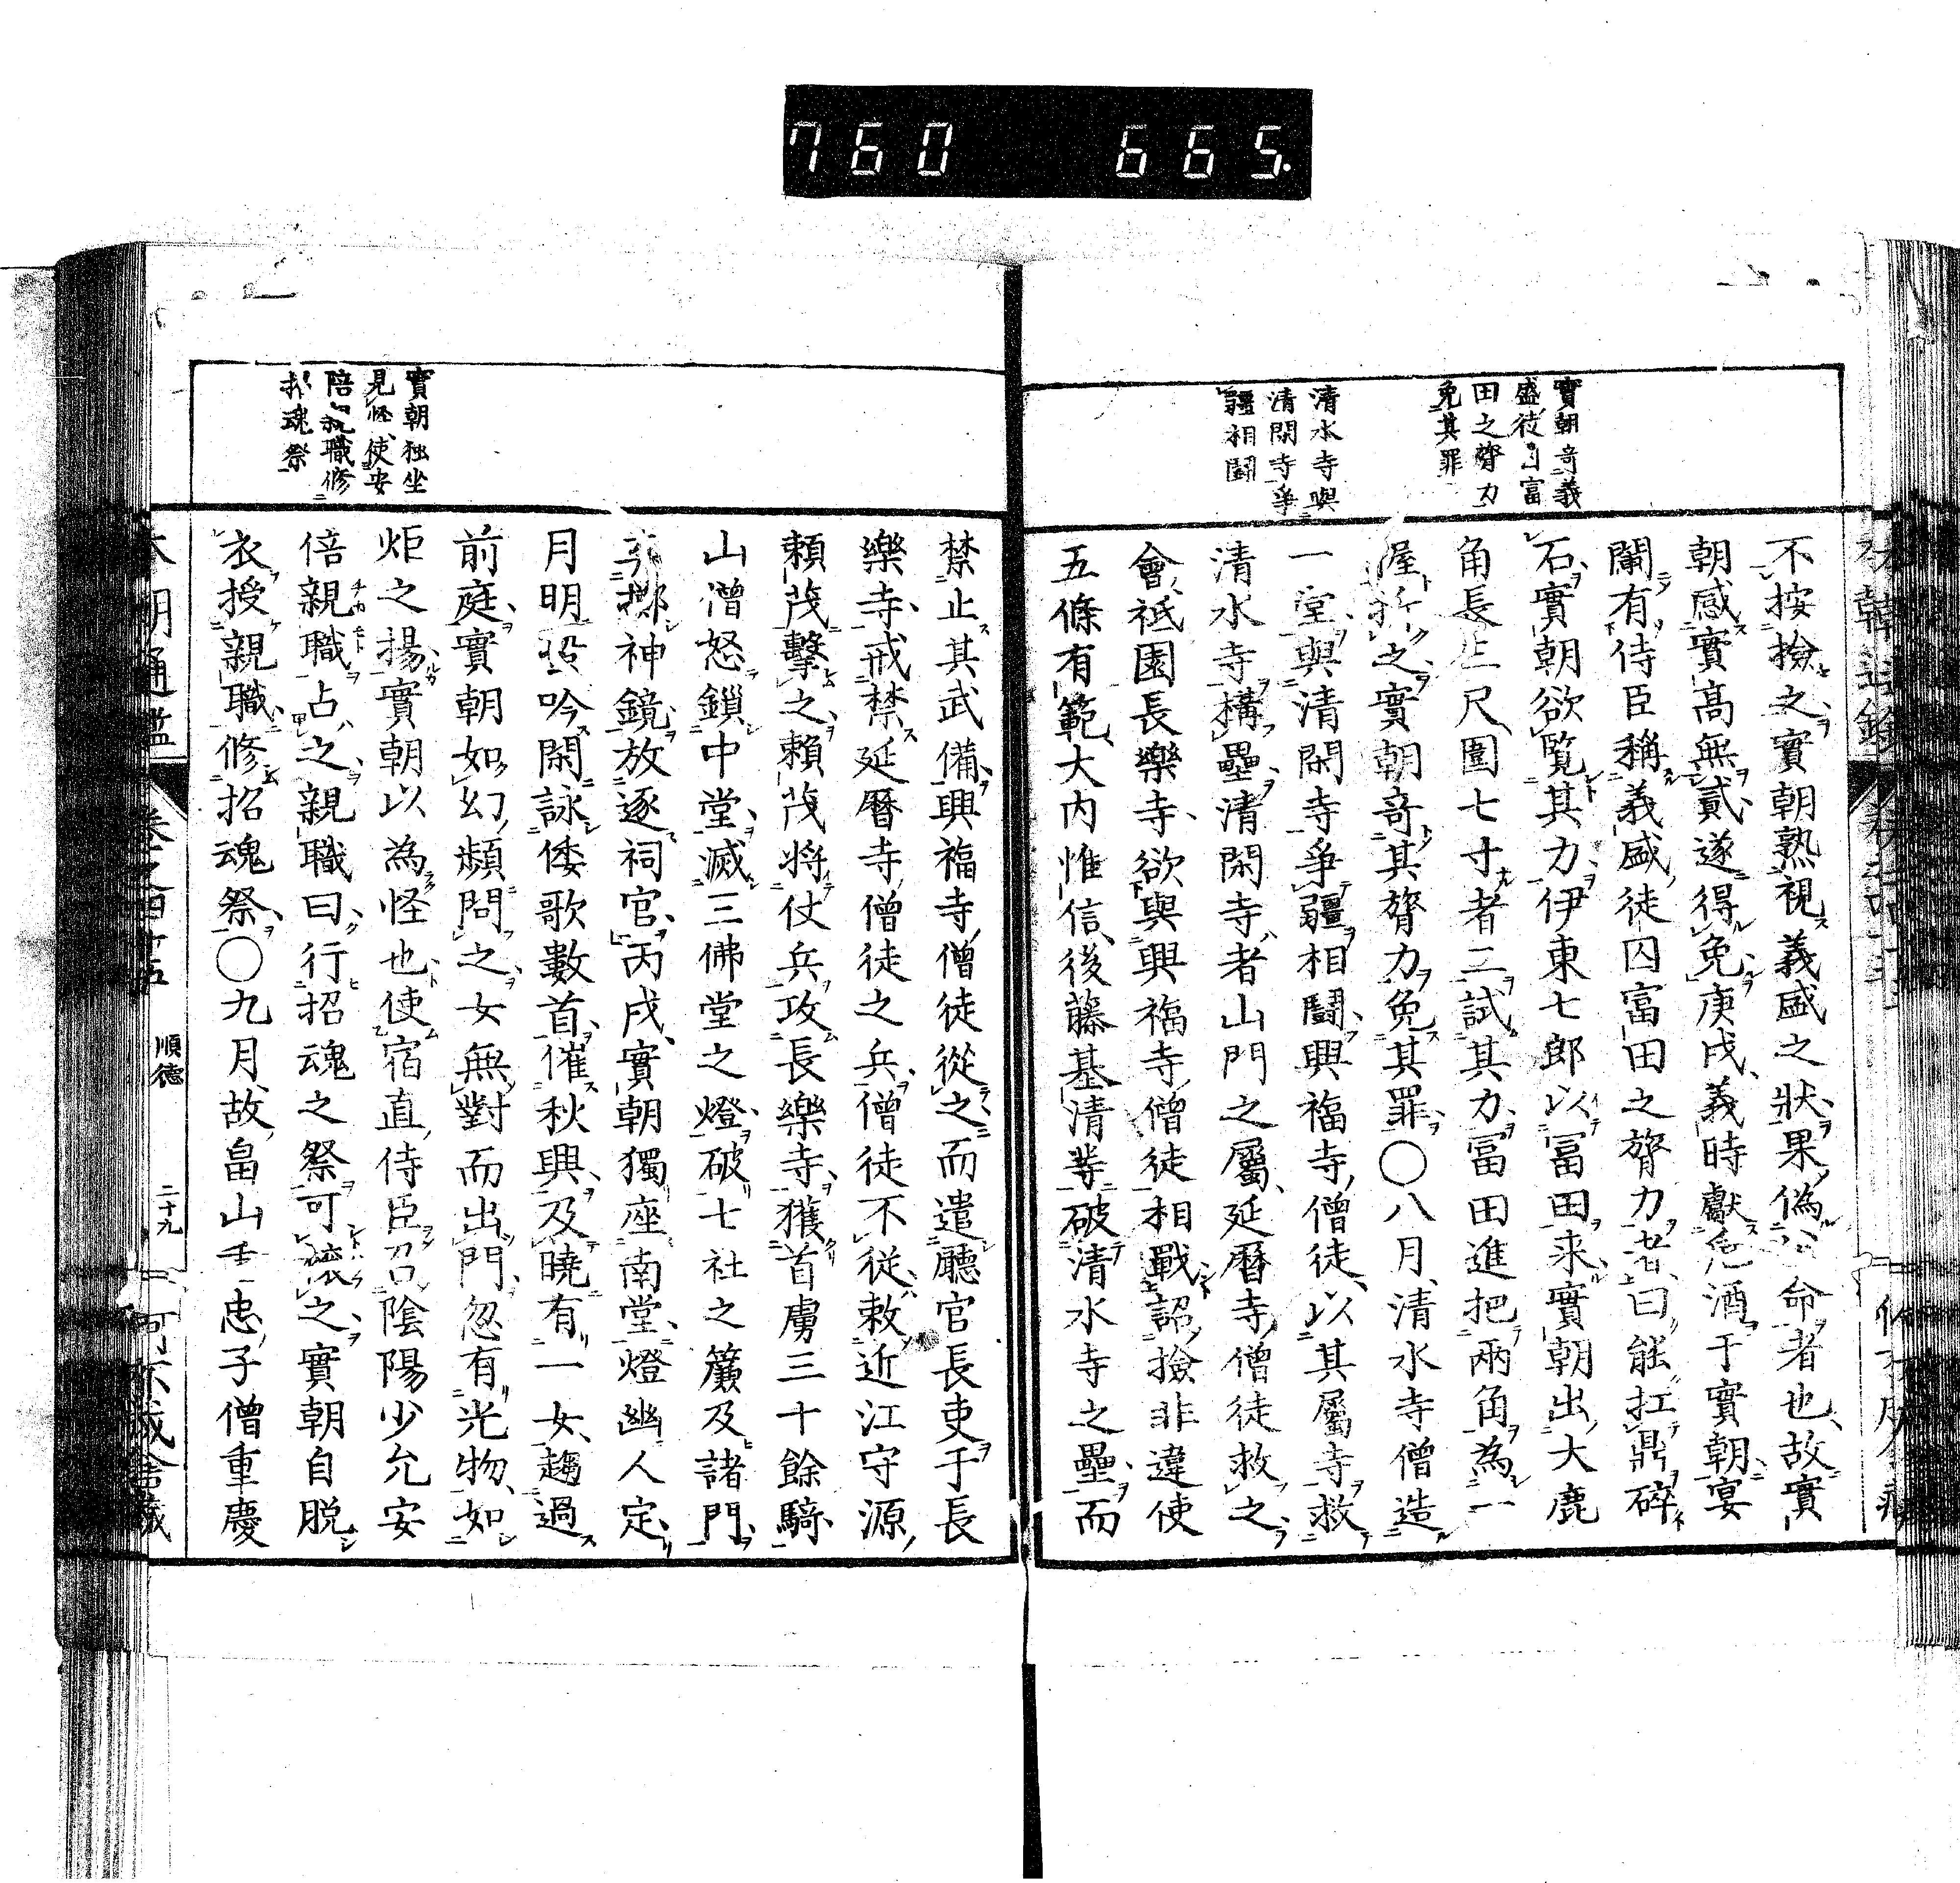 760 665.
實朝奇義
盛徒富
田之膂力
免其罪
清水寺與
清閑寺爭
疆相鬪
不按撿之實朝熟視義盛之狀果偽命者也故實
朝感實高無貳遂得免庚戌義時獻酒于實朝宴
闌有侍臣稱義盛徒囚富田之膂力者曰能扛鼎碎
石實朝欲覧其力伊東七郎以冨田来實朝出大鹿
角長三尺圍七寸者二試其力冨田進把兩角為一
握折之實朝奇其膂力免其罪○八月清水寺僧造
一堂與清閑寺爭疆相鬪興福寺僧徒以其屬寺救
清水寺構壘清閑寺者山門之屬延曆寺僧徒救之
會祗園長樂寺欲與興福寺僧徒相戰詔撿非違使
五條有範大内惟信後藤基清等破清水寺之壘而
實朝独坐
見怪使安
陪親職修
招魂祭
禁止其武備興福寺僧徒從之而遣廳官長吏于長
樂寺戒禁延曆寺僧徒之兵僧徒不從敕近江守源
頼茂擊之頼茂将仗兵攻長樂寺獲首虜三十餘騎
山僧怒鎖中堂滅三佛堂之燈破七社之簾及諸門
擲神鏡放逐祠官丙戌實朝獨座南堂燈幽人定
月明吟閑詠倭歌數首催秋興及曉有一女趨過
前庭實朝如幻頻問之女無對而出門忽有光物如
炬之揚實朝以為怪也使宿直侍臣召陰陽少允安
倍親職占之親職曰行招魂之祭可禳之實朝自脱
衣授親職修招魂祭○九月故畠山重忠子僧重慶
本朝通鑑 卷之四十五 順德 二十九